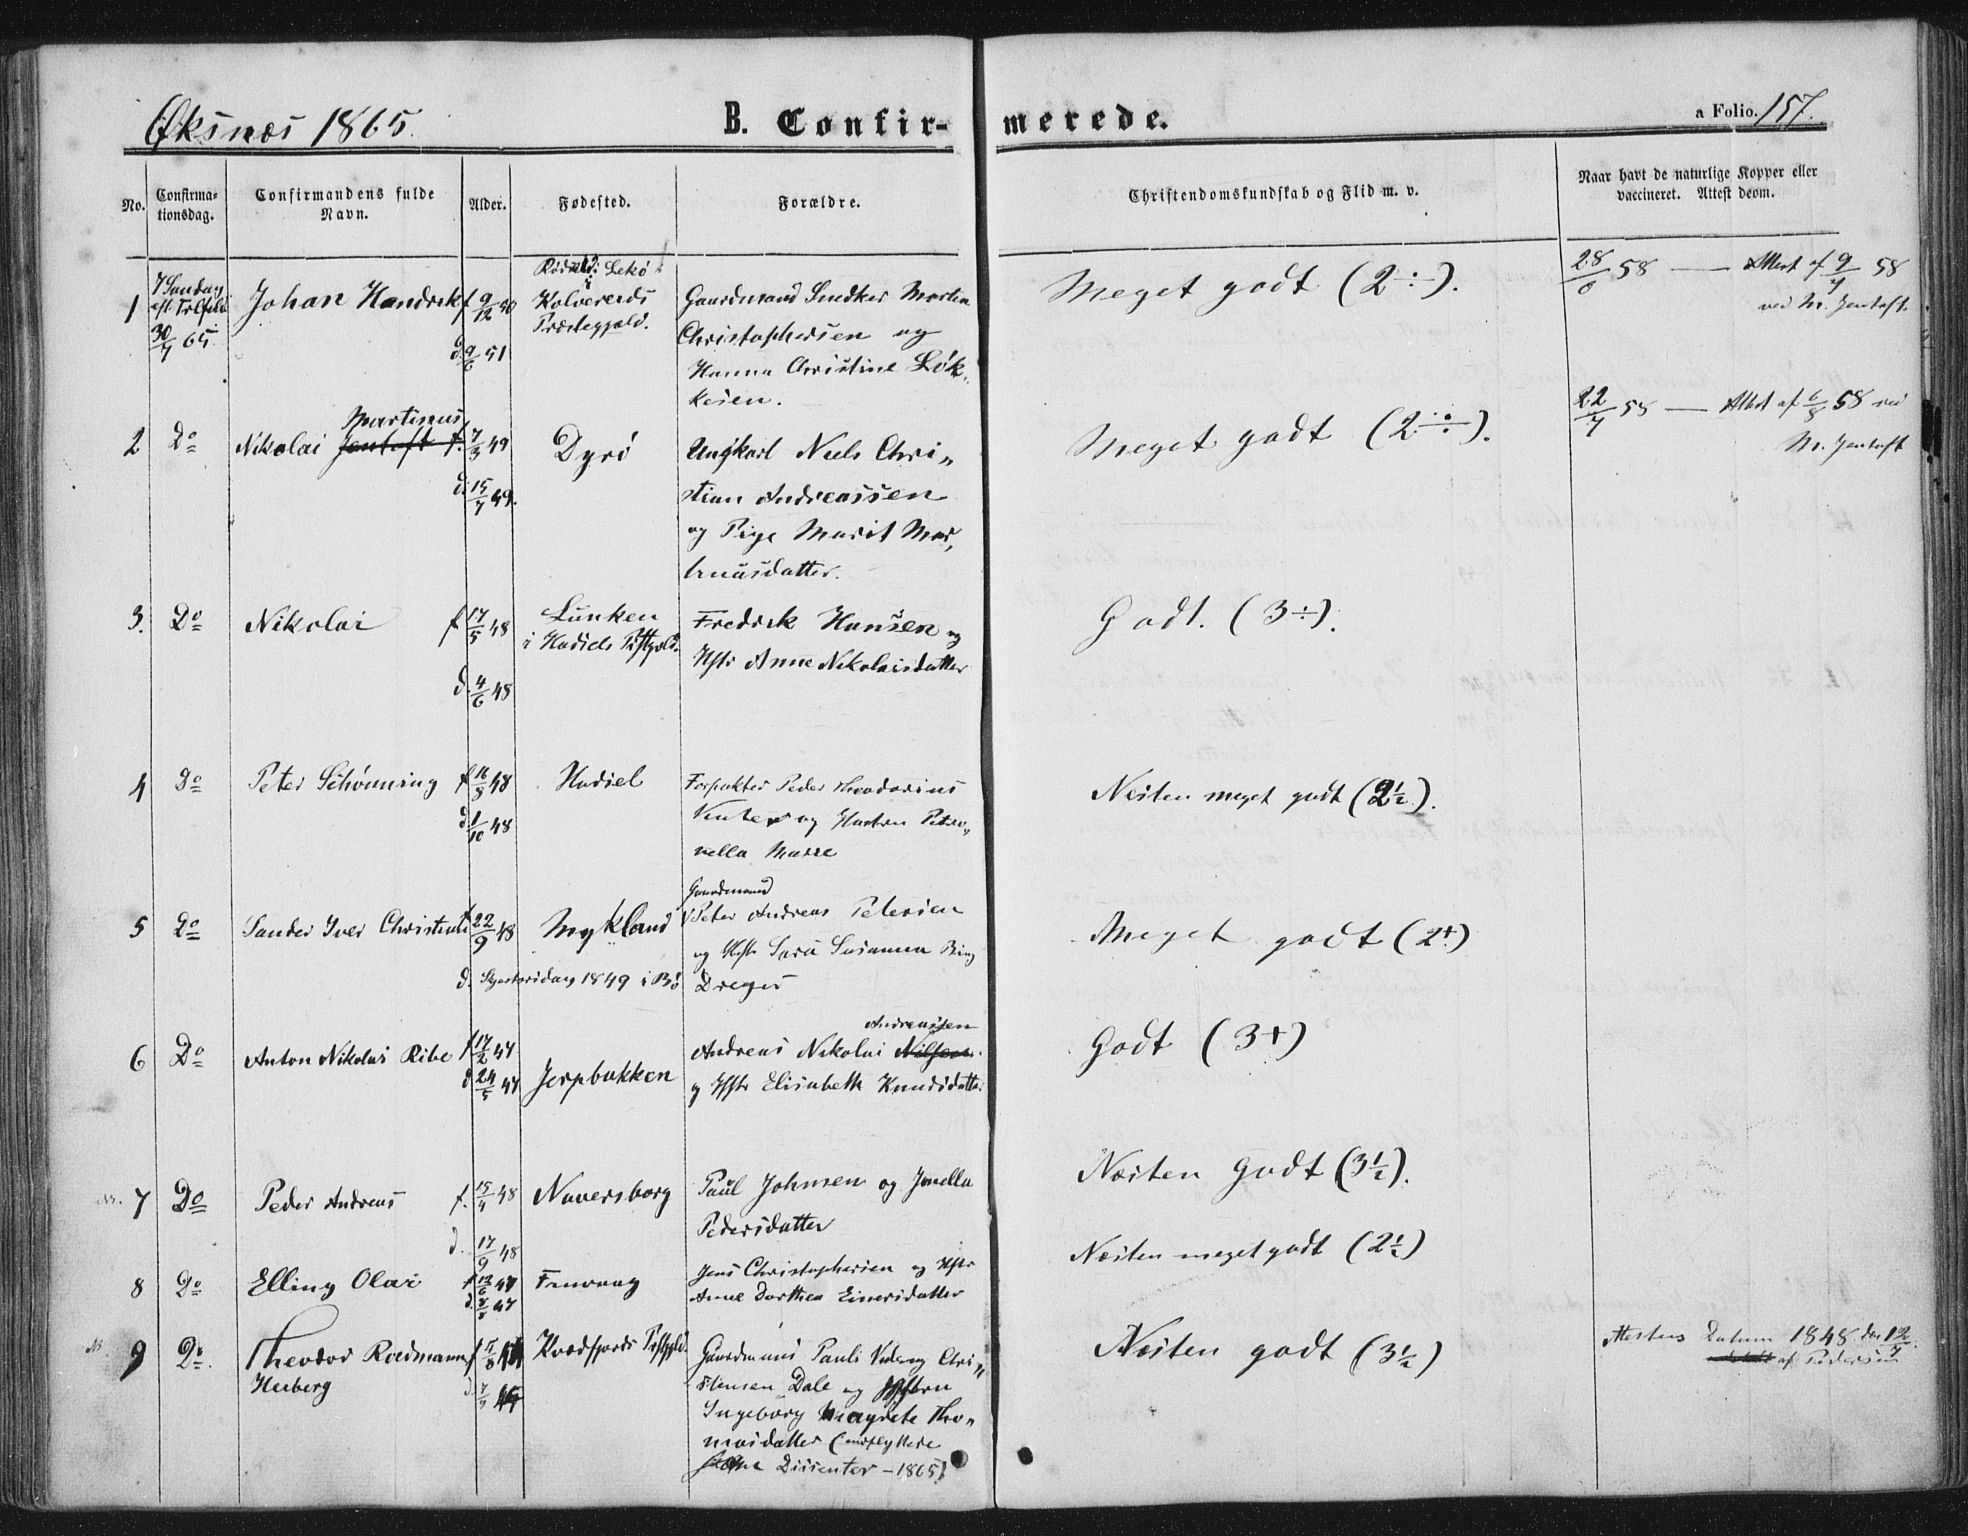 Øksnæs 1865.
B. Confir- merede.
a Folio. 157.
No.
Confirma-
tionsdag.
Confirmandens fulde
Navn.
Alder.
Fødested.
Forældre.
Christendomskundskab og Flid m. v.
Naar havt de naturlige Kopper eller
vaccineret. Attest deom.
1
7 Søndag
eft Trefold
30/7 65
Johan Hendrik f 9/12 50
d. 9/6 51
Lekø
Kolvereids
Præstegjæld.
Gaardmand Snedker Martin
Christophersen og
Hanna Christine Løk-
kesen.
Meget godt (2÷).
28/6 58 — Attest af 9/7 58
ved M. Jentoft.
2
Do
Martinus
Nikolai Jentoft f. 7/3 49
d. 15/7 49.
Dyrö
Ungkarl Niels Chri„
stian Andreassen
og Pige Marit Mar„
tinusdatter.
Meget godt (2÷).
22/7 58 — Attest af 6/8 58 ved
M. Jentoft
3.
Do
Nikolai f 17/5 48
d. 4/6 48
Lunken
i Hadsels Pstgjeld.
Fredrik Hansen og
Hstr Anne Nikolaisdatter
Godt. (3÷).
4
Do
Peter Schønning f 16/8 48
d 1/10 48
Hadsel
Forpakter Peder Theodorius
og Hustru Petro„
nella
Næsten meget godt (2½).
5
Do
Sander Iver Christian f 22/9 48
d. Skjærtorsdag 1849 i Bø
Mykland
Gaardmand
Peter Andreas Petersen
og Hstr Sara Susanna Bing
Dreyer
Meget godt (2+)
6
Do
Anton Nikolai Ribe f 17/2 47
d 24/5 47
Jerpbakken
Andreassen
Andreas Nikolai Nilsen
og Hstr Elisabeth Knudsdatter
Godt (3+)
7
Do
Peder Andreas f. 15/4 48
d. 17/9 48
Naversborg
Paul Johnsen og Jonella
Pedersdatter
Næsten Godt (3½).
8
Do
Elling Olai
Frovaag
Jens Christophersen og Hstr
Anne Dorthea Einersdatter
Næsten meget godt (2½)
9
Do
Theodor Roedmann
Herberg
Kvædfjords Pstgjeld.
Gaardmand Pauli Chri„
stensen Dale og Hustru
Ingeborg Magrete Tho„
masdatter (indflyttede
Dissenter – 1865)
Næsten godt (3½)
Attestens Datum 1848 den 12/7
af Pedersen